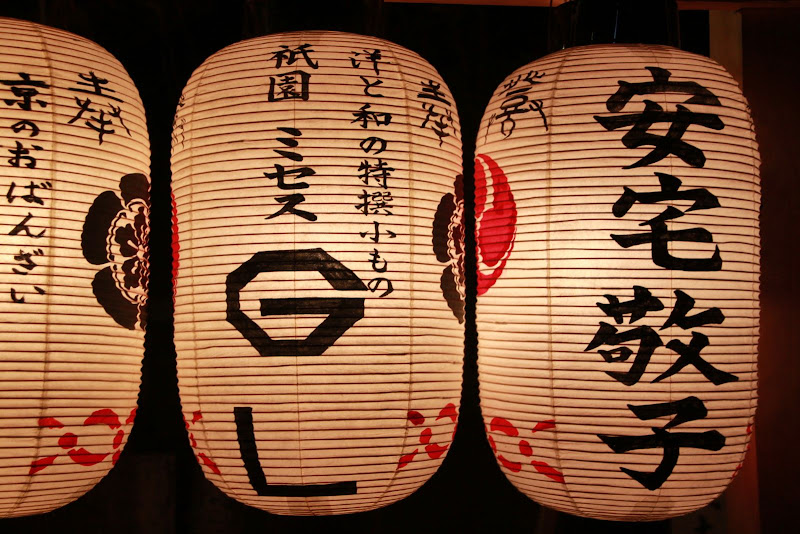 安宅敬子
洋と和の特撰小もの
祇園 ミセス
G
L
京のおばんざい